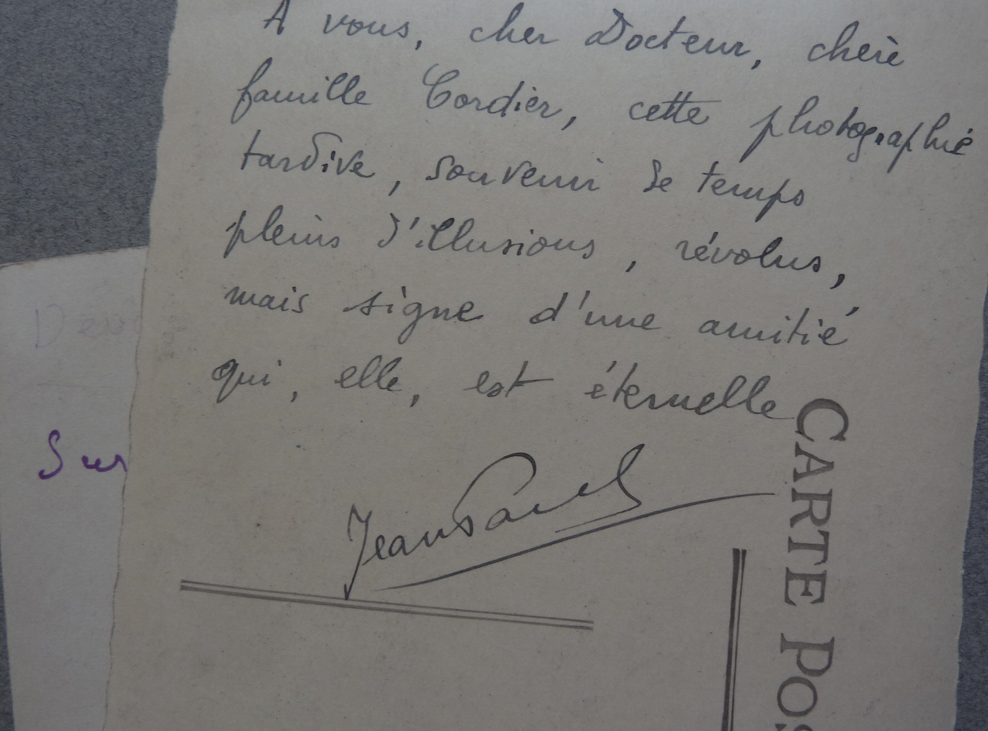 A vous, cher Docteur, chère
famille Cordier, cette photographie
tardive, souvenir de temps
pleins d'illusions, révolus,
mais signe d'une amitié
qui, elle, est éternelle
Jean Paul
CARTE POS
Sur